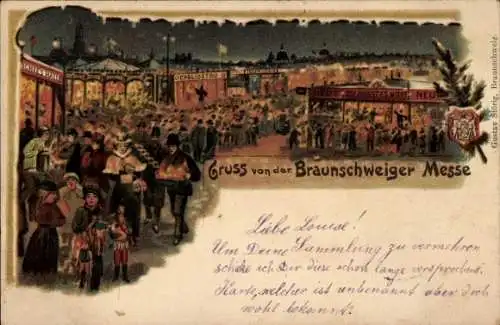 Gruss von der Braunschweiger Messe
Liebe Louise!
Um Deine Sammlung zu vermehren
schicke ich Dir diese schon lange versprochene
Karte, welcher ist unbenannt aber doch
wohl bekannt.